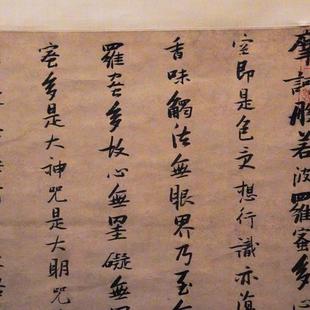 摩訶般若波羅蜜多心
空即是色受想行識亦復
香味觸法無眼界乃至無
羅蜜多故心無罣礙無罣
蜜多是大神咒是大明咒